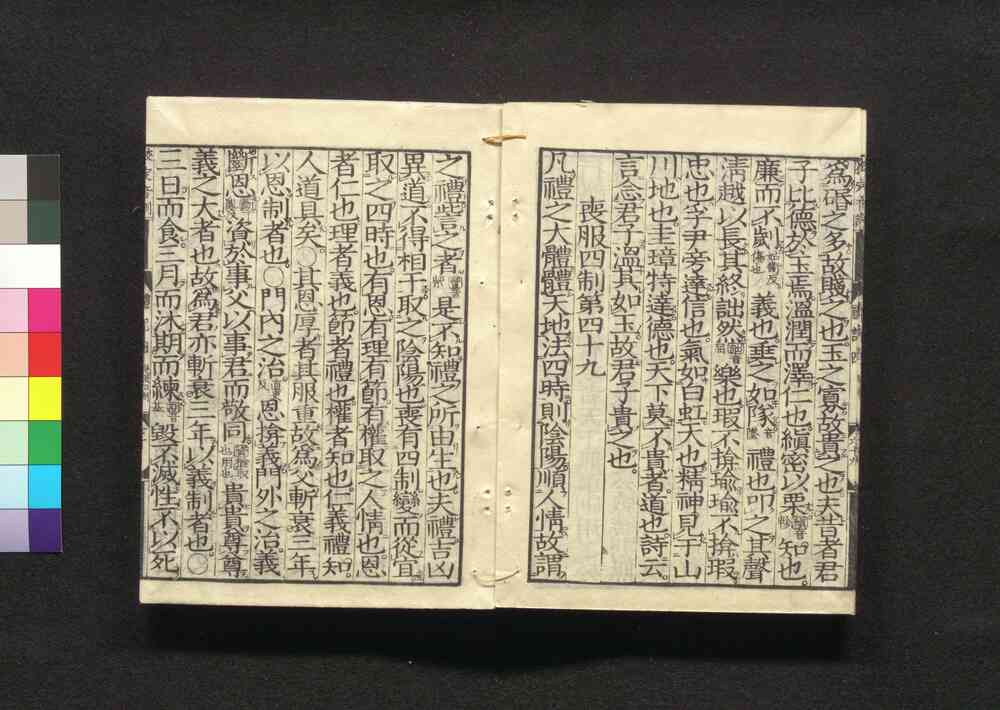 爲碈之多故賤之也玉之寡故貴之也夫昔者君
子比德於玉焉溫潤而澤仁也縝密以栗知也
廉而不劌義也垂之如隊禮也叩之其聲
淸越以長其終詘然樂也瑕不揜瑜瑜不揜瑕
忠也孚尹旁達信也氣如白虹天也精神見于山
川地也圭璋特達德也天下莫不貴者道也詩云
言念君子溫其如玉故君子貴之也
喪服四制第四十九
凡禮之大體體天地法四時則陰陽順人情故謂
之禮訾之者是不知禮之所由生也夫禮吉凶
異道不得相干取之陰陽也喪有四制變而從宜
取之四時也有恩有理有節有權取之人情也恩
者仁也理者義也節者禮也權者知也仁義禮知
人道具矣○其恩厚者其服重故爲父斬衰三年
以恩制者也○門內之治恩揜義門外之治義
斷恩資於事父以事君而敬同貴貴尊尊
義之大者也故爲君亦斬衰三年以義制者也○
三日而食三月而沐期而練毀不滅性不以死